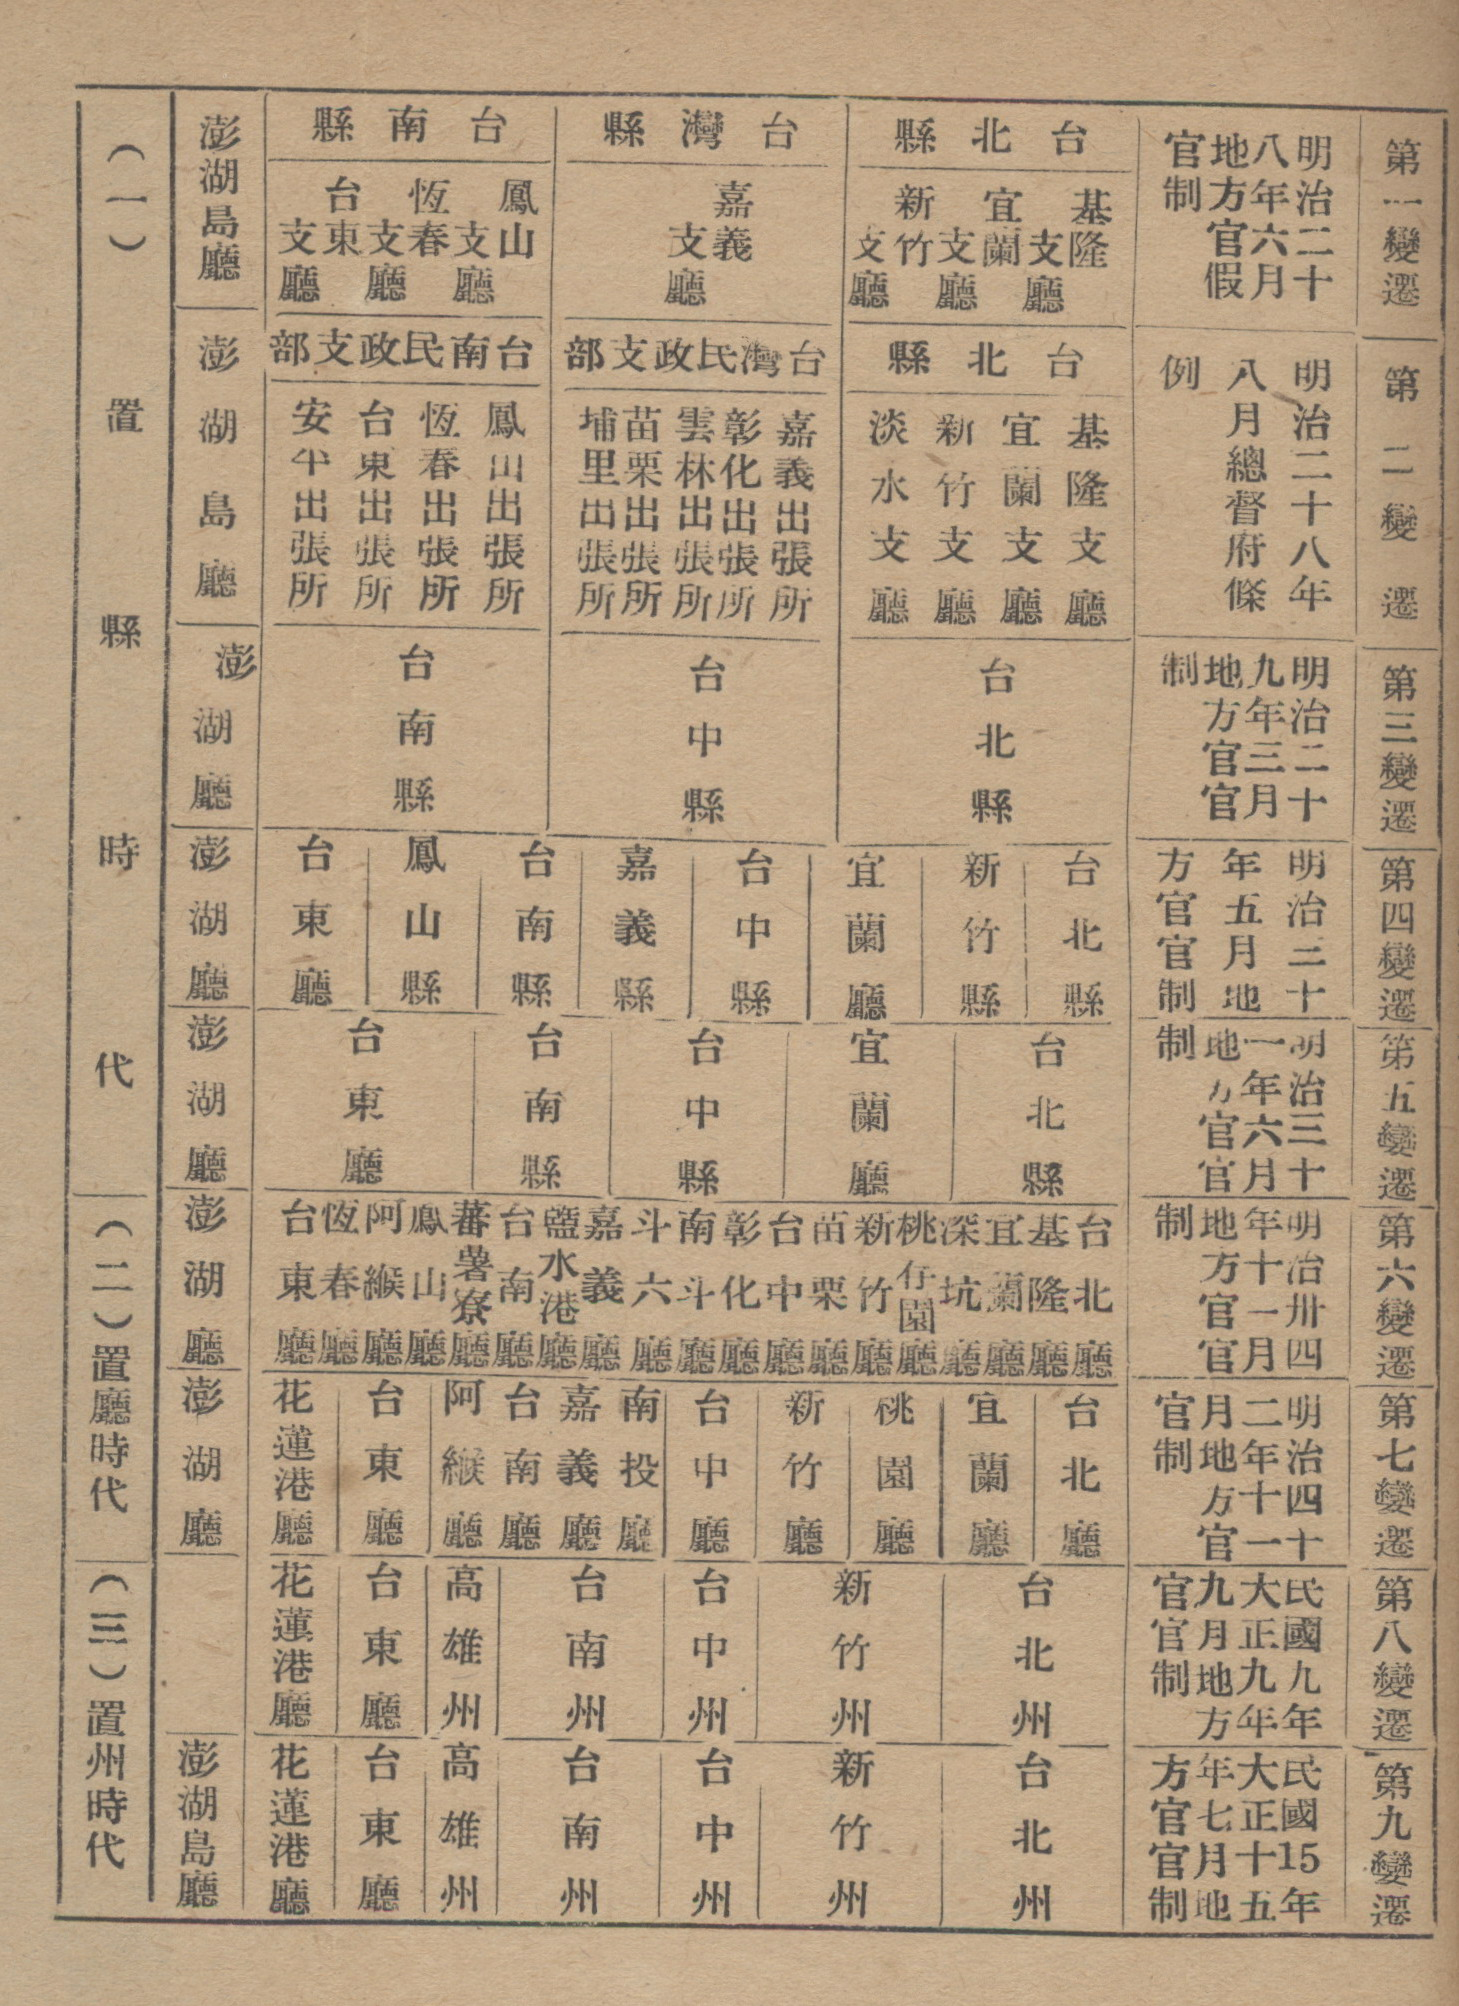 第一變遷
明治二十
八年六月
地方官假
官制
台北縣
基隆支廳
宜蘭支廳
新竹支廳
台灣縣
嘉義支廳
台南縣
鳳山支廳
恆春支廳
台東支廳
澎湖島廳
第二變遷
明治二十八年
八月總督府條
例
台北縣
基隆支廳
宜蘭支廳
新竹支廳
淡水支廳
台灣民政支部
嘉義出張所
彰化出張所
雲林出張所
苗栗出張所
埔里出張所
台南民政支部
鳳山出張所
恆春出張所
台東出張所
安平出張所
澎湖島廳
第三變遷
明治二十
九年三月
地方官官
制
台北縣
台中縣
台南縣
澎湖廳
第四變遷
明治三十
年五月地
方官官制
台北縣
新竹縣
宜蘭廳
台中縣
嘉義縣
台南縣
鳳山縣
台東廳
澎湖廳
第五變遷
明治三十
一年六月
地方官官
制
台北縣
宜蘭廳
台中縣
台南縣
台東廳
澎湖廳
第六變遷
明治卅四
年十一月
地方官官
制
台北廳
基隆廳
宜蘭廳
深坑廳
桃仔園廳
新竹廳
苗栗廳
台中廳
彰化廳
南斗廳
斗六廳
嘉義廳
鹽水港廳
台南廳
蕃薯寮廳
鳳山廳
阿緱廳
恆春廳
台東廳
澎湖廳
第七變遷
明治四十
二年十一
月地方官
官制
台北廳
宜蘭廳
桃園廳
新竹廳
台中廳
南投廳
嘉義廳
台南廳
阿緱廳
台東廳
花蓮港廳
澎湖廳
第八變遷
民國九年
大正九年
九月地方
官官制
台北州
新竹州
台中州
台南州
高雄州
台東廳
花蓮港廳
第九變遷
民國15年
大正十五
年七月地
方官官制
台北州
新竹州
台中州
台南州
高雄州
台東廳
花蓮港廳
澎湖島廳
（一）置縣時代
（二）置廳時代
（三）置州時代